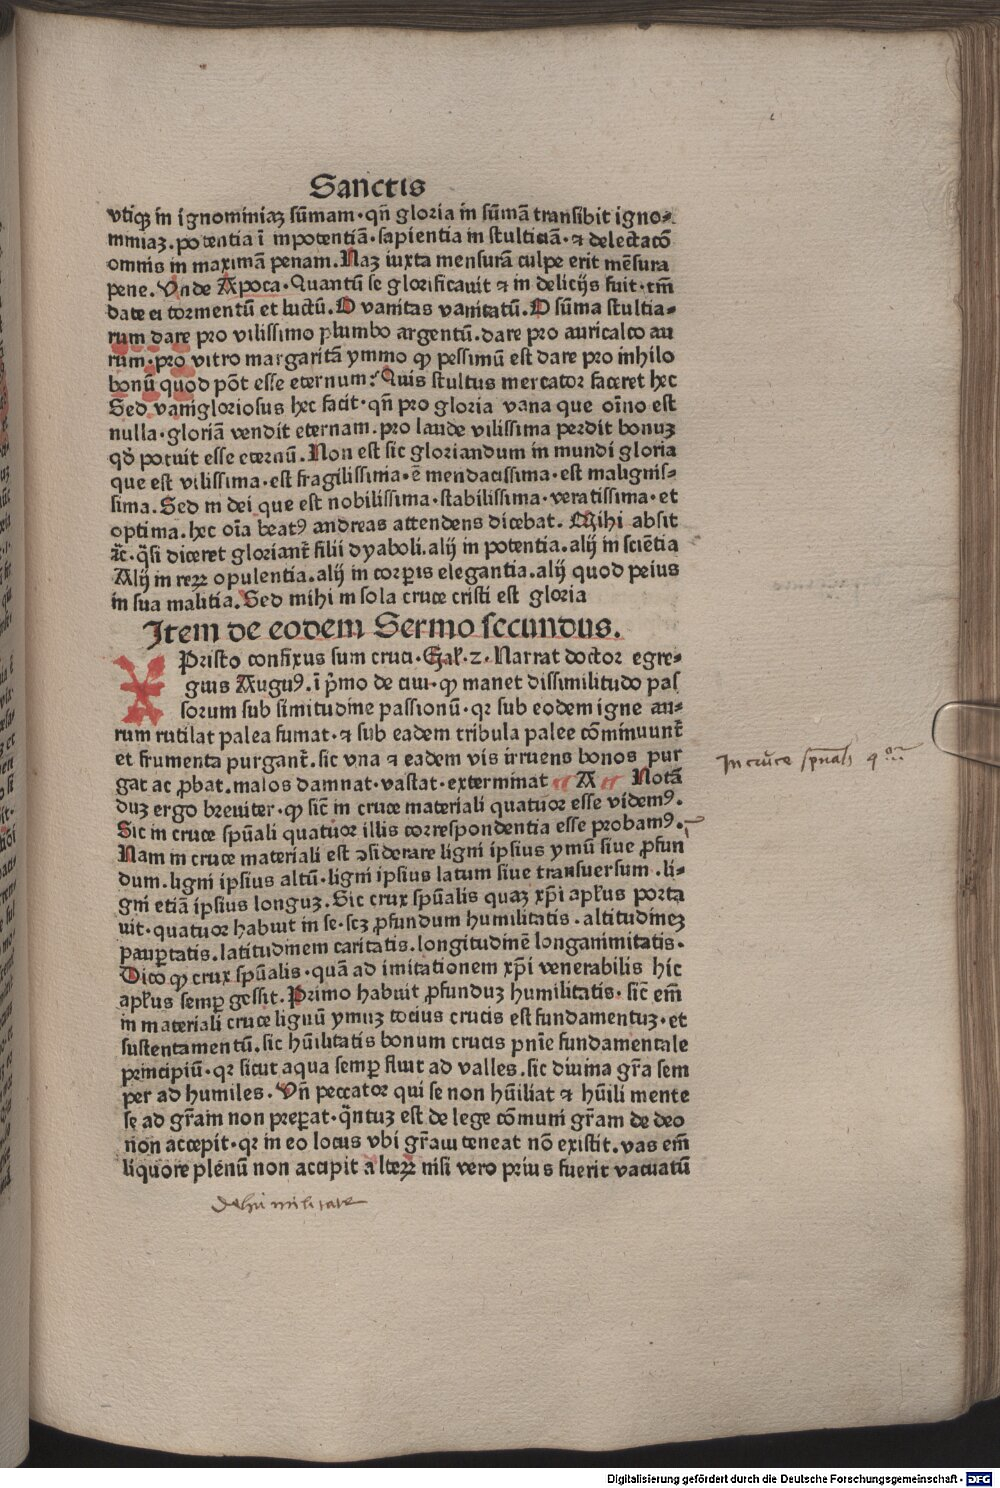 Sanctis
vtiqꝫ in ignominiaꝫ sūmam·qn̄ gloria in sūmā transibit igno-
miniaꝫ.potentia ī impotentiā·sapientia in stulticiā·⁊ delectacō
omnis in maximā penam.Naꝫ iuxta mensurā culpe erit mēsura
pene.Vnde Apoca·Quantū se glorificauit ⁊ in delicijs fuit·tm̄
date ei tormentū et luctū.O vanitas vanitatū.O sūma stultia-
rum dare pro vilissimo plumbo argentū.dare pro auricalco au
rum·pro vitro margaritā ymmo ꝙ pessimū est dare pro inhilo
bonū quod pōt esse eternum?Quis stultus mercator faceret hec
Sed vanigloriosus hec facit·qn̄ pro gloria vana que oīno est
nulla·gloriā vendit eternam.pro laude vilissima perdit bonuꝫ
qd̄ potuit esse eternū.Non est sic gloriandum in mundi gloria
que est vilissima·est fragilissima·ē mendacissima·est malignis-
sima.Sed in dei que est nobilissima·stabilissima·veratissima·et
optima.hec oīa beatꝰ andreas attendens dicebat. Mihi absit
⁊c̄·q̄si diceret gloriant̄ filii dyaboli.alij in potentia.alij in sciētia
Alij in reꝝ opulentia.alij in corꝑis elegantia.alij quod peius
in sua malitia.Sed mihi in sola cruce cristi est gloria
Item de eodem Sermo secundus.
XPristo confixus sum cruci·Gal·2·Narrat doctor egre-
gius Auguꝰ.ī p̄mo de ciui·ꝙ manet dissimilitudo pas
sorum sub similitudine passionū·qꝛ sub eodem igne au-
rum rutilat palea fumat·⁊ sub eadem tribula palee cōminuunt̄
et frumenta purgant̄.sic vna ⁊ eadem vis irruens bonos pur
gat ac ꝓbat.malos damnat·vastat·exterminat A Notā
duꝫ ergo breuiter·ꝙ sic̄ in cruce materiali quatuor esse videmꝰ.
Sic in cruce spūali quatuor illis correspondentia esse probamꝰ.
Nam in cruce materiali est ↄsiderare ligni ipsius ymū siue ꝓfun
dum.ligni ipsius altū·ligni ipsius latum siue transuersum.li-
gni etiā ipsius longuꝫ.Sic crux spūalis quaꝫ xp̄i apl̄us porta
uit·quatuor habuit in se·scꝫ ꝓfundum humilitatis·altitudineꝫ
pauꝑtatis.latitudinem caritatis.longitudinē longanimitatis.
Dico ꝙ crux spūalis·quā ad imitationem xp̄i venerabilis hic
apl̄us semꝑ gessit.Primo habuit ꝓfunduꝫ humilitatis·sic̄ em̄
in materiali cruce lignū ymuꝫ tocius crucis est fundamentuꝫ·et
sustentamentū.sic hūilitatis bonum crucis pnīe fundamentale
principiū·qꝛ sicut aqua semꝑ fluit ad valles.sic diuina gr̄a sem
per ad humiles.Vn̄ peccator qui se non hūiliat ⁊ hūili mente
se ad gr̄am non preꝑat·q̄ntuꝫ est de lege cōmuni gr̄am de deo
non accepit·qꝛ in eo locus vbi gr̄am teneat nō existit.vas em̄
liquore plenū non accipit alteꝝ nisi vero prius fuerit vacuatū
In cruce spūali qor
De humilitate
Digitalisierung gefördert durch die Deutsche Forschungsgemeinschaft · DFG